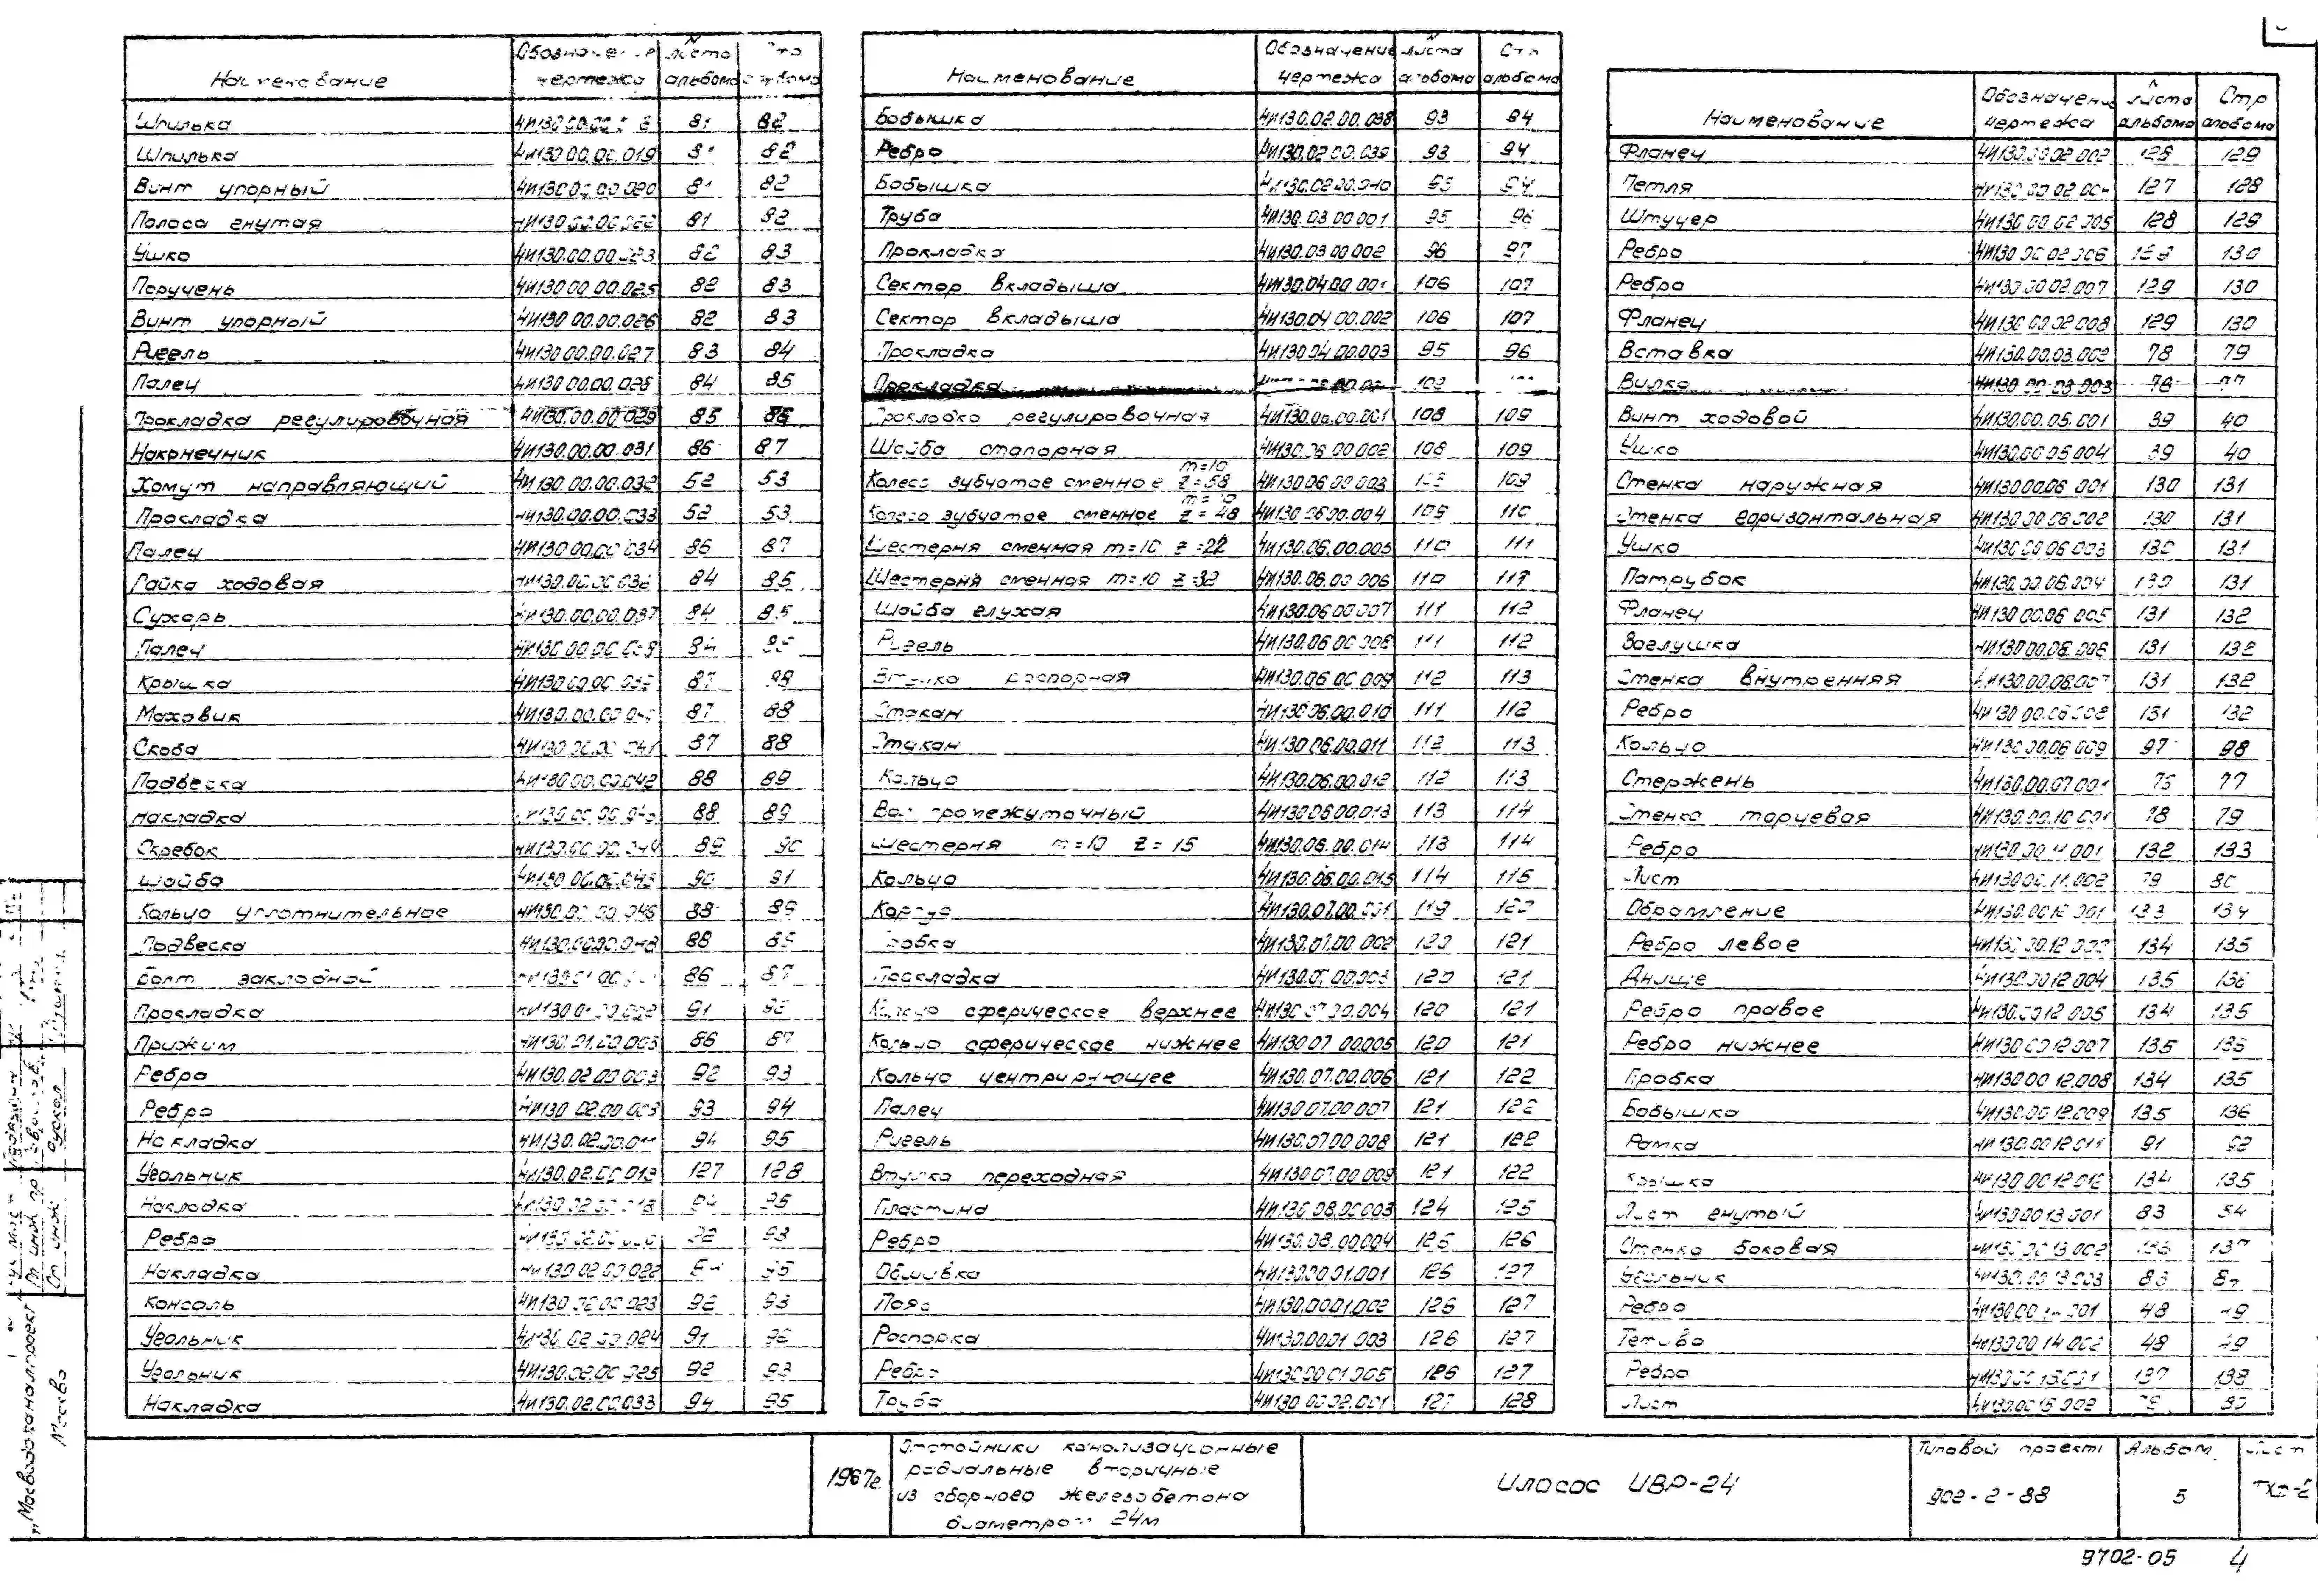 Наименование Обозначение чертежа № листа альбома Стр альбома
Шпилька 81 82
Шпилька 4И130.00.00.019 81 82
Винт упорный 4И130.00.00.020 81 82
Полоса гнутая 4И130.00.00.022 81 82
Ушко 4И130.00.00.023 82 83
Поручень 4И130.00.00.025 82 83
Винт упорный 4И130.00.00.026 82 83
Ригель 4И130.00.00.027 83 84
Палец 4И130.00.00.028 84 85
Прокладка регулировочная 4И130.00.00.029 85 86
Наконечник 4И130.00.00.031 86 87
Хомут направляющий 4И130.00.00.032 52 53
Прокладка 4И130.00.00.033 52 53
Палец 4И130.00.00.034 86 87
Гайка ходовая 4И130.00.00.036 84 85
Сухарь 4И130.00.00.037 84 85
Палец 4И130.00.00.038 84 85
Крышка 4И130.00.00.039 87 88
Маховик 87 88
Скоба 4И130.00.00.041 87 88
Подвеска 4И130.00.00.042 88 89
Накладка 88 89
Скребок 4И130.00.00.044 89 90
Шайба 4И130.00.00.045 90 91
Кольцо уплотнительное 4И130.00.00.046 88 89
Подвеска 4И130.00.00.048 88 89
Болт закладной 86 87
Прокладка 4И130.01.00.002 91 92
Прижим 4И130.01.00.003 86 87
Ребро 4И130.02.00.003 92 93
Ребро 93 94
Накладка 4И130.02.00.011 94 95
Угольник 4И130.02.00.013 127 128
Накладка 94 95
Ребро 92 93
Накладка 4И130.02.00.022 94 95
Консоль 4И130.02.00.023 92 93
Угольник 4И130.02.00.024 91 92
Угольник 4И130.02.00.025 92 93
Накладка 4И130.02.00.033 94 95
Наименование Обозначение чертежа № листа альбома Стр альбома
Бобышка 4И130.02.00.038 93 94
Ребро 4И130.02.00.039 93 94
Бобышка 4И130.02.00.040 93 94
Труба 4И130.03.00.001 95 96
Прокладка 4И130.03.00.002 96 97
Сектор вкладыша 4И130.04.00.001 106 107
Сектор вкладыша 4И130.04.00.002 106 107
Прокладка 4И130.04.00.003 95 96
Прокладка
Прокладка регулировочная 4И130.06.00.001 108 109
Шайба стопорная 4И130.06.00.002 108 109
Колесо зубчатое сменное m=10 z=58 4И130.06.00.003 109
Колесо зубчатое сменное m=10 z=48 4И130.06.00.004 109 110
Шестерня сменная m=10 z=22 4И130.06.00.005 110 111
Шестерня сменная m=10 z=32 4И130.06.00.006 110 111
Шайба глухая 4И130.06.00.007 111 112
Ригель 4И130.06.00.008 111 112
Втулка распорная 4И130.06.00.009 112 113
Стакан 4И130.06.00.010 111 112
Стакан 4И130.06.00.011 112 113
Кольцо 4И130.06.00.012 112 113
Вал промежуточный 4И130.06.00.013 113 114
Шестерня m=10 z=15 4И130.06.00.014 113 114
Кольцо 4И130.06.00.015 114 115
Корпус 4И130.07.00.001 119 120
Пробка 4И130.07.00.002 120 121
Прокладка 4И130.07.00.003 120 121
Кольцо сферическое верхнее 4И130.07.00.004 120 121
Кольцо сферическое нижнее 4И130.07.00.005 120 121
Кольцо центрирующее 4И130.07.00.006 121 122
Палец 4И130.07.00.007 121 122
Ригель 4И130.07.00.008 121 122
Втулка переходная 4И130.07.00.009 121 122
Пластина 4И130.08.00.003 124 125
Ребро 4И130.08.00.004 125 126
Обшивка 4И130.00.01.001 126 127
Пояс 4И130.00.01.002 126 127
Распорка 4И130.00.01.003 126 127
Ребро 4И130.00.01.005 126 127
Труба 4И130.00.02.001 127 128
Наименование Обозначение чертежа № листа альбома Стр альбома
Фланец 4И130.00.02.002 128 129
Петля 4И130.00.02.004 127 128
Штуцер 4И130.00.02.005 128 129
Ребро 4И130.00.02.006 129 130
Ребро 4И130.00.02.007 129 130
Фланец 4И130.00.02.008 129 130
Вставка 4И130.00.03.002 78 79
Вилка 4И130.00.03.003 76 77
Винт ходовой 4И130.00.05.001 39 40
Ушко 4И130.00.05.004 39 40
Стенка наружная 4И130.00.06.001 130 131
Стенка горизонтальная 4И130.00.06.002 130 131
Ушко 4И130.00.06.003 130 131
Патрубок 4И130.00.06.004 130 131
Фланец 4И130.00.06.005 131 132
Заглушка 4И130.00.06.006 131 132
Стенка внутренняя 4И130.00.06.007 131 132
Ребро 4И130.00.06.008 131 132
Кольцо 4И130.00.06.009 97 98
Стержень 4И130.00.07.001 76 77
Стенка торцевая 4И130.00.10.001 78 79
Ребро 4И130.00.11.001 132 133
Лист 4И130.00.11.002 79 80
Обрамление 4И130.00.12.001 133 134
Ребро левое 134 135
Днище 4И130.00.12.004 135 136
Ребро правое 4И130.00.12.005 134 135
Ребро нижнее 4И130.00.12.007 135 136
Пробка 4И130.00.12.008 134 135
Бобышка 4И130.00.12.009 135 136
Рамка 4И130.00.12.011 91 92
Крышка 4И130.00.12.012 134 135
Лист гнутый 4И130.00.13.001 83 84
Стенка боковая 4И130.00.13.002 136 137
Угольник 4И130.00.13.003 83 84
Ребро 4И130.00.14.001 48 49
Тетива 4И130.00.14.002 48 49
Ребро 4И130.00.15.001 137 138
Лист 4И130.00.15.002 79 80
„Мосводоканалпроект"
Москва
1967г.
Отстойники канализационные
радиальные вторичные
из сборного железобетона
диаметром 24м
Илосос ИВР-24
Типовой проект
902-2-88
Альбом
5
Лист
9702-05 4